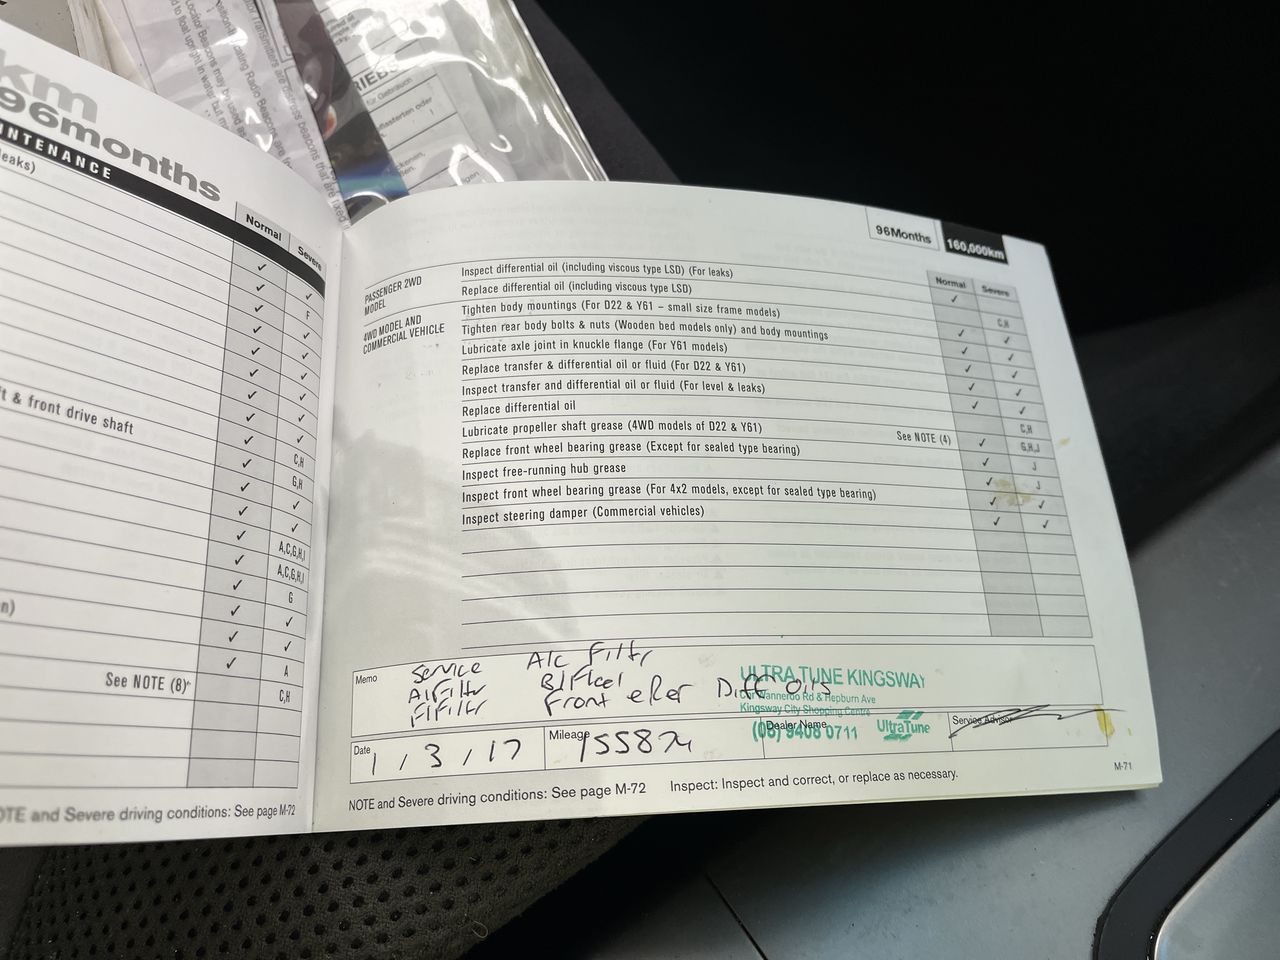 km
96months
INTENANCE
leaks)
Normal
Severe
F
t & front drive shaft
C,H
G,H
A,C,G,H,I
A,C,G,H,I
G
n)
A
See NOTE (8)
C,H
OTE and Severe driving conditions: See page M-72
für Gebrauch
96Months
160,000km
Normal
Severe
PASSENGER 2WD
MODEL
Inspect differential oil (including viscous type LSD) (For leaks)
Replace differential oil (including viscous type LSD)
C,H
4WD MODEL AND
COMMERCIAL VEHICLE
Tighten body mountings (For D22 & Y61 – small size frame models)
Tighten rear body bolts & nuts (Wooden bed models only) and body mountings
Lubricate axle joint in knuckle flange (For Y61 models)
Replace transfer & differential oil or fluid (For D22 & Y61)
Inspect transfer and differential oil or fluid (For level & leaks)
Replace differential oil
C,H
Lubricate propeller shaft grease (4WD models of D22 & Y61)
See NOTE (4)
G,H,J
Replace front wheel bearing grease (Except for sealed type bearing)
J
Inspect free-running hub grease
J
Inspect front wheel bearing grease (For 4x2 models, except for sealed type bearing)
Inspect steering damper (Commercial vehicles)
Memo
Service A/C Filtr
A/Filtr B/Fluel
F/Filtr Front & Rer Diff Oils
ULTRA TUNE KINGSWAY
Cnr Wanneroo Rd & Hepburn Ave
Kingsway City Shopping Centre
(08) 9408 0711
UltraTune
Date
1/3/17
Mileage
155874
Dealer Name
Service Advisor
NOTE and Severe driving conditions: See page M-72
Inspect: Inspect and correct, or replace as necessary.
M-71